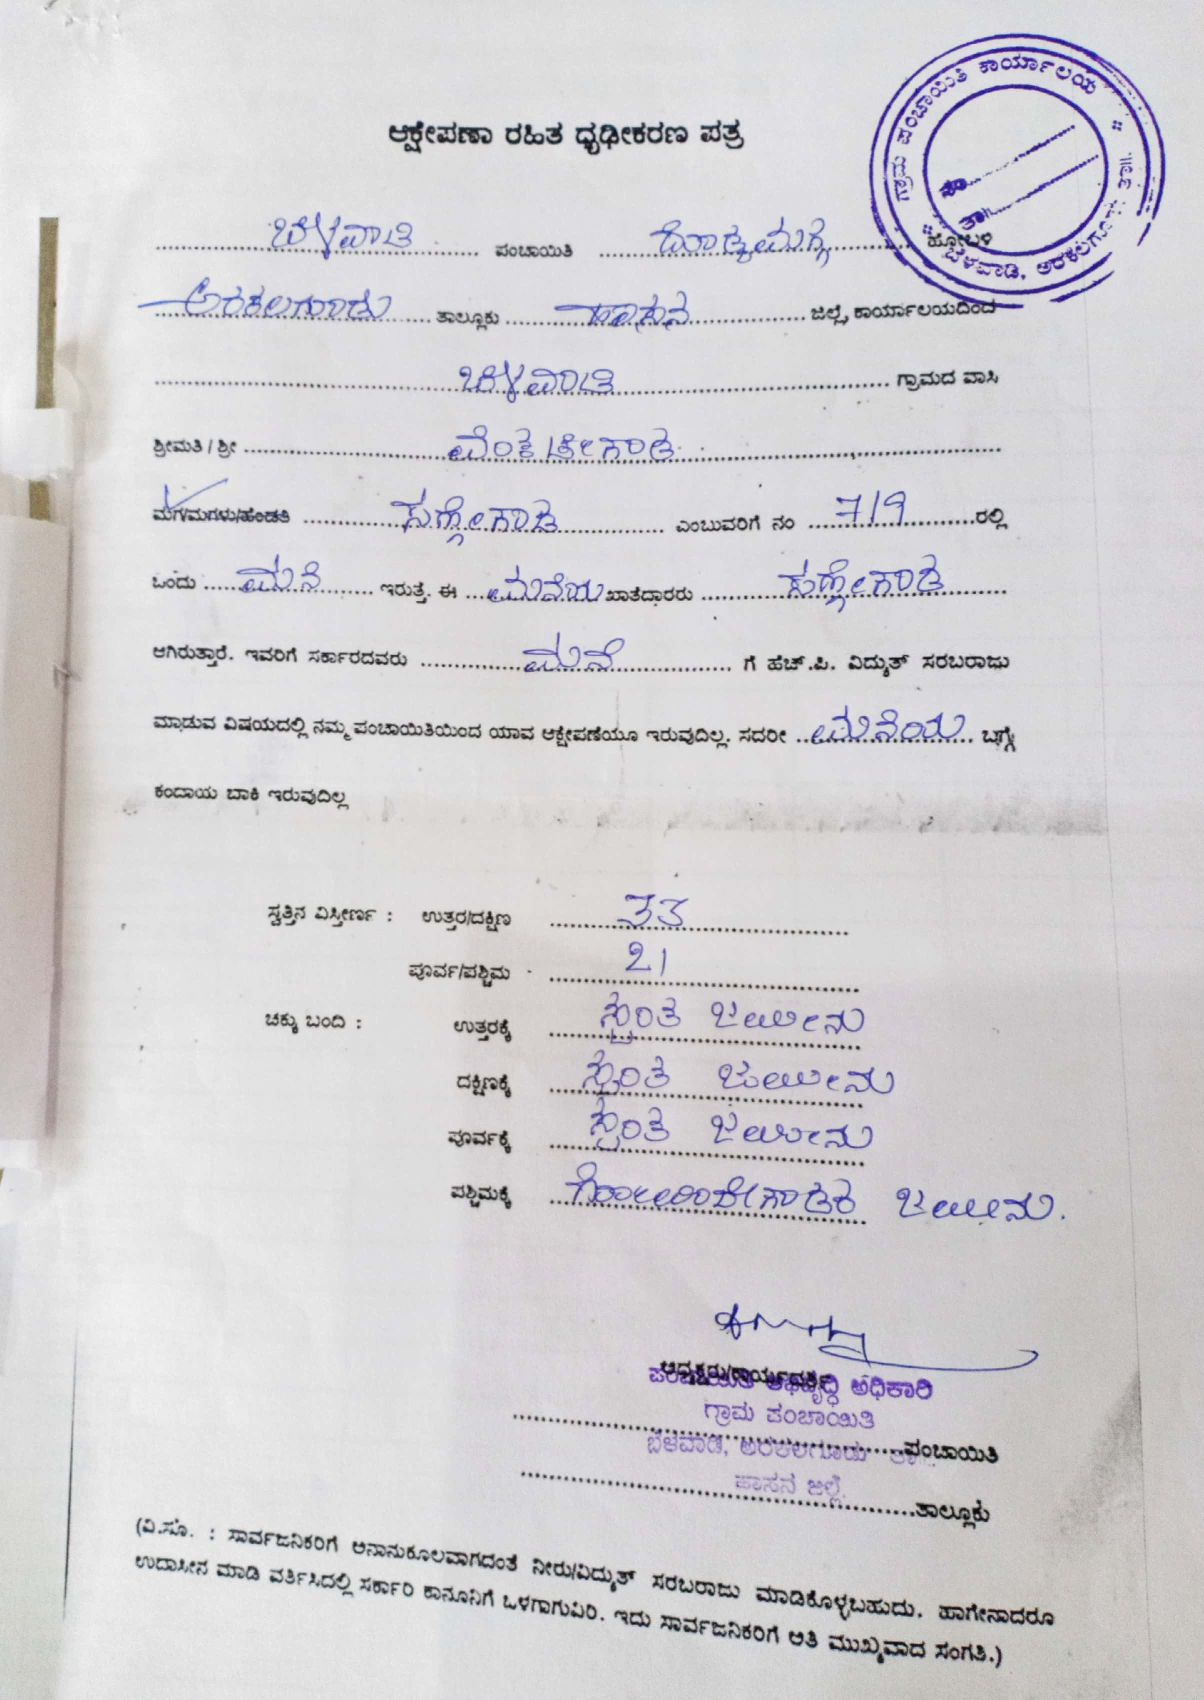 ಗ್ರಾಮ ಪಂಚಾಯಿತಿ ಕಾರ್ಯಾಲಯ
ಬೆಳವಾಡಿ, ಅರಕಲಗೂಡು ತಾ॥
ಆಕ್ಷೇಪಣಾ ರಹಿತ ಧೃಢೀಕರಣ ಪತ್ರ
ಬೆಳವಾಡಿ ಪಂಚಾಯಿತಿ ದೊಡ್ಡಮಗ್ಗೆ ಹೋಬಳಿ
ಅರಕಲಗೂಡು ತಾಲ್ಲೂಕು ಹಾಸನ ಜಿಲ್ಲೆ, ಕಾರ್ಯಾಲಯದಿಂದ
ಬೆಳವಾಡಿ ಗ್ರಾಮದ ವಾಸಿ
ಶ್ರೀಮತಿ / ಶ್ರೀ ವೆಂಕಟೇಗೌಡ
ಮಗ/ಮಗಳು/ಹೆಂಡತಿ ಸಣ್ಣೇಗೌಡ ಎಂಬುವರಿಗೆ ನಂ 719 ರಲ್ಲಿ
ಒಂದು ಮನೆ ಇರುತ್ತೆ. ಈ ಮನೆಯ ಖಾತೆದಾರರು ಸಣ್ಣೇಗೌಡ
ಆಗಿರುತ್ತಾರೆ. ಇವರಿಗೆ ಸರ್ಕಾರದವರು ಮನೆ ಗೆ ಹೆಚ್.ಪಿ. ವಿದ್ಯುತ್ ಸರಬರಾಜು
ಮಾಡುವ ವಿಷಯದಲ್ಲಿ ನಮ್ಮ ಪಂಚಾಯಿತಿಯಿಂದ ಯಾವ ಆಕ್ಷೇಪಣೆಯೂ ಇರುವುದಿಲ್ಲ. ಸದರೀ ಮನೆಯ ಬಗ್ಗೆ
ಕಂದಾಯ ಬಾಕಿ ಇರುವುದಿಲ್ಲ
ಸ್ವತ್ತಿನ ವಿಸ್ತೀರ್ಣ : ಉತ್ತರ/ದಕ್ಷಿಣ 33
ಪೂರ್ವ/ಪಶ್ಚಿಮ 21
ಚಕ್ಕು ಬಂದಿ : ಉತ್ತರಕ್ಕೆ ಸ್ವಂತ ಜಮೀನು
ದಕ್ಷಿಣಕ್ಕೆ ಸ್ವಂತ ಜಮೀನು
ಪೂರ್ವಕ್ಕೆ ಸ್ವಂತ ಜಮೀನು
ಪಶ್ಚಿಮಕ್ಕೆ ಜಮೀನು.
ಅಧ್ಯಕ್ಷರು/ಕಾರ್ಯದರ್ಶಿ
ಪಂಚಾಯಿತಿ ಅಭಿವೃದ್ಧಿ ಅಧಿಕಾರಿ
ಗ್ರಾಮ ಪಂಚಾಯಿತಿ
ಬೆಳವಾಡಿ, ಅರಕಲಗೂಡು ತಾ॥ ಪಂಚಾಯಿತಿ
ಹಾಸನ ಜಿಲ್ಲೆ.
ತಾಲ್ಲೂಕು
(ವಿ.ಸೂ. : ಸಾರ್ವಜನಿಕರಿಗೆ ಅನಾನುಕೂಲವಾಗದಂತೆ ನೀರು/ವಿದ್ಯುತ್ ಸರಬರಾಜು ಮಾಡಿಕೊಳ್ಳಬಹುದು. ಹಾಗೇನಾದರೂ
ಉದಾಸೀನ ಮಾಡಿ ವರ್ತಿಸಿದಲ್ಲಿ ಸರ್ಕಾರಿ ಕಾನೂನಿಗೆ ಒಳಗಾಗುವಿರಿ. ಇದು ಸಾರ್ವಜನಿಕರಿಗೆ ಅತಿ ಮುಖ್ಯವಾದ ಸಂಗತಿ.)